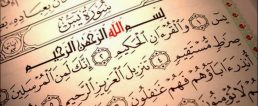 سُورَةُ يسٓ
بِسْمِ اللَّهِ الرَّحْمَٰنِ الرَّحِيمِ
وَٱلْقُرْءَانِ ٱلْحَكِيمِ ٢ إِنَّكَ لَمِنَ ٱلْمُرْسَلِينَ
صِرَٰطٍ مُّسْتَقِيمٍ ٤ تَنزِيلَ ٱلْعَزِيزِ ٱلرَّحِيمِ
أُنذِرَ ءَابَآؤُهُمْ فَهُمْ غَٰفِلُونَ